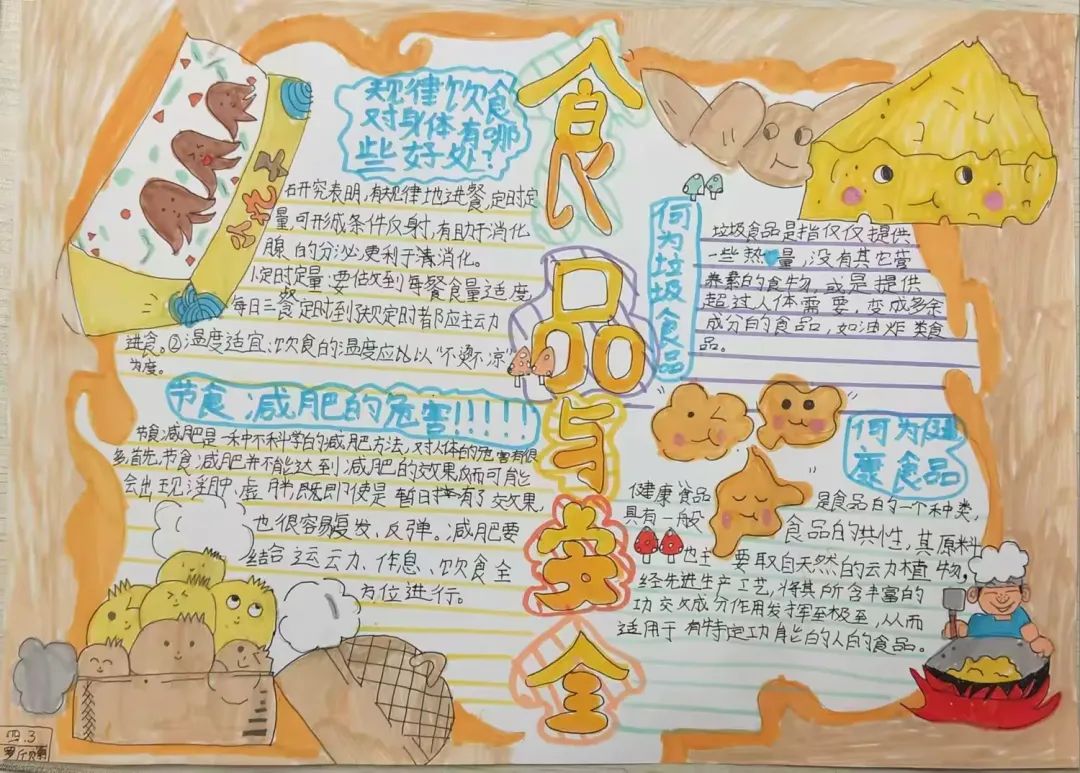 食品与安全
规律饮食
对身体有哪
些好处?
研究表明,有规律地进餐,定时定
量,可形成条件反射,有助于消化
腺的分泌,更利于消化。
定时定量:要做到每餐食量适度,
每日三餐定时到规定时都应主动
进食。②温度适宜、饮食的温度应以“不烫不凉”
为度。
节食减肥的危害!!!!!!
节食减肥是一种不科学的减肥方法,对人体的危害有很
多,首先,节食减肥并不能达到减肥的效果,反而可能
会出现浮肿、虚胖,既即使是暂时有了效果,
也很容易复发、反弹。减肥要
结合运动、作息、饮食全
方位进行。
何为垃圾食品
垃圾食品是指仅仅提供
一些热量,没有其它营
养素的食物,或是提供
超过人体需要,变成多余
成分的食品,如油炸类食
品。
何为健
康食品
健康食品是食品的一个种类,
具有一般食品的共性,其原料
也主要取自天然的动植物,
经先进生产工艺,将其所含丰富的
功效成分作用发挥至极至,从而
适用于有特定功能的人的食品。
四.3